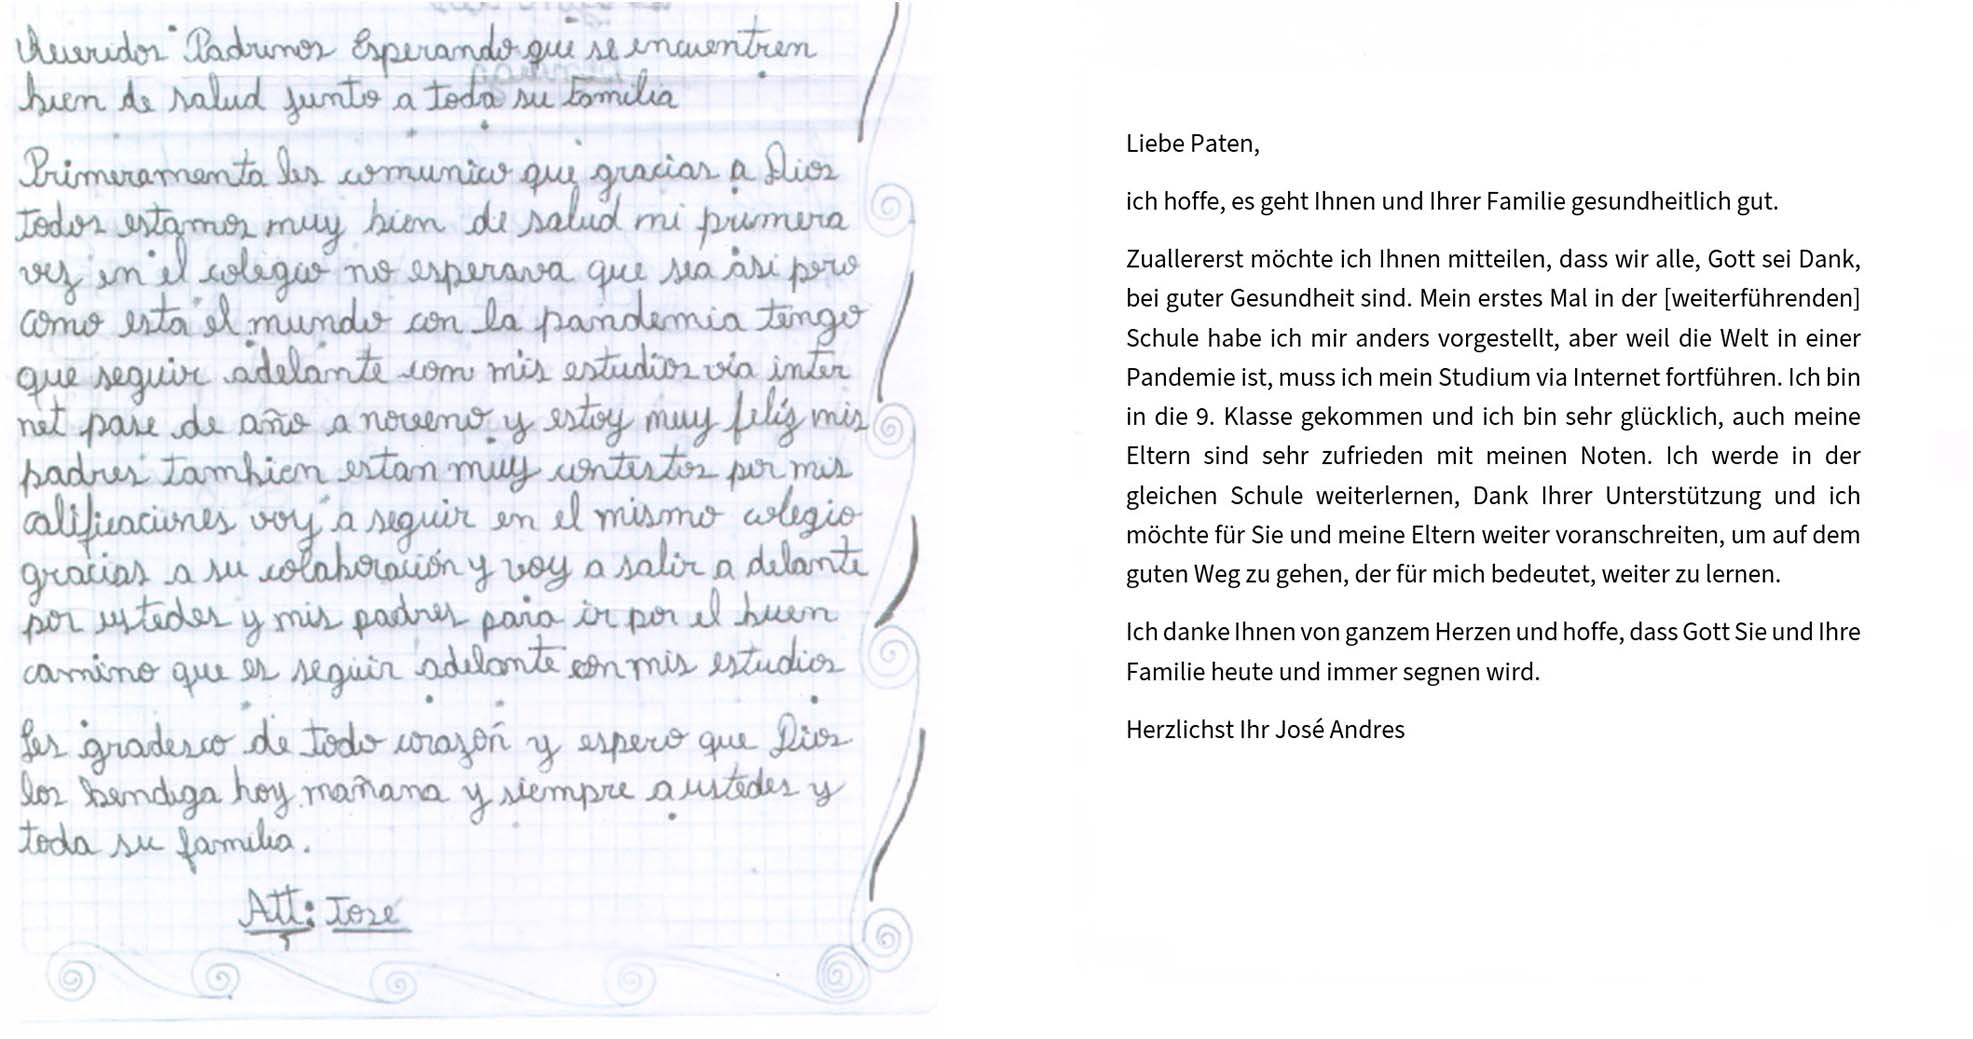 Queridos Padrinos Esperando que se encuentren
bien de salud junto a toda su Familia
Primeramenta les comunico que gracias a Dios
todos estamos muy bien de salud mi primera
vez en el colegio no esperava que sea asi pero
como esta el mundo con la pandemia tengo
que seguir adelante com mis estudios via inter
net pase de año a noveno y estoy muy feliz mis
padres tambien estan muy contestos por mis
calificaciones voy a seguir en el mismo colegio
gracias a su colaboración y voy a salir a delante
por ustedes y mis padres para ir por el buen
camino que es seguir adelante con mis estudios
Les gradesco de todo corazón y espero que Dios
los bendiga hoy mañana y siempre a ustedes y
toda su familia.
Att: José
Liebe Paten,
ich hoffe, es geht Ihnen und Ihrer Familie gesundheitlich gut.
Zuallererst möchte ich Ihnen mitteilen, dass wir alle, Gott sei Dank,
bei guter Gesundheit sind. Mein erstes Mal in der [weiterführenden]
Schule habe ich mir anders vorgestellt, aber weil die Welt in einer
Pandemie ist, muss ich mein Studium via Internet fortführen. Ich bin
in die 9. Klasse gekommen und ich bin sehr glücklich, auch meine
Eltern sind sehr zufrieden mit meinen Noten. Ich werde in der
gleichen Schule weiterlernen, Dank Ihrer Unterstützung und ich
möchte für Sie und meine Eltern weiter voranschreiten, um auf dem
guten Weg zu gehen, der für mich bedeutet, weiter zu lernen.
Ich danke Ihnen von ganzem Herzen und hoffe, dass Gott Sie und Ihre
Familie heute und immer segnen wird.
Herzlichst Ihr José Andres